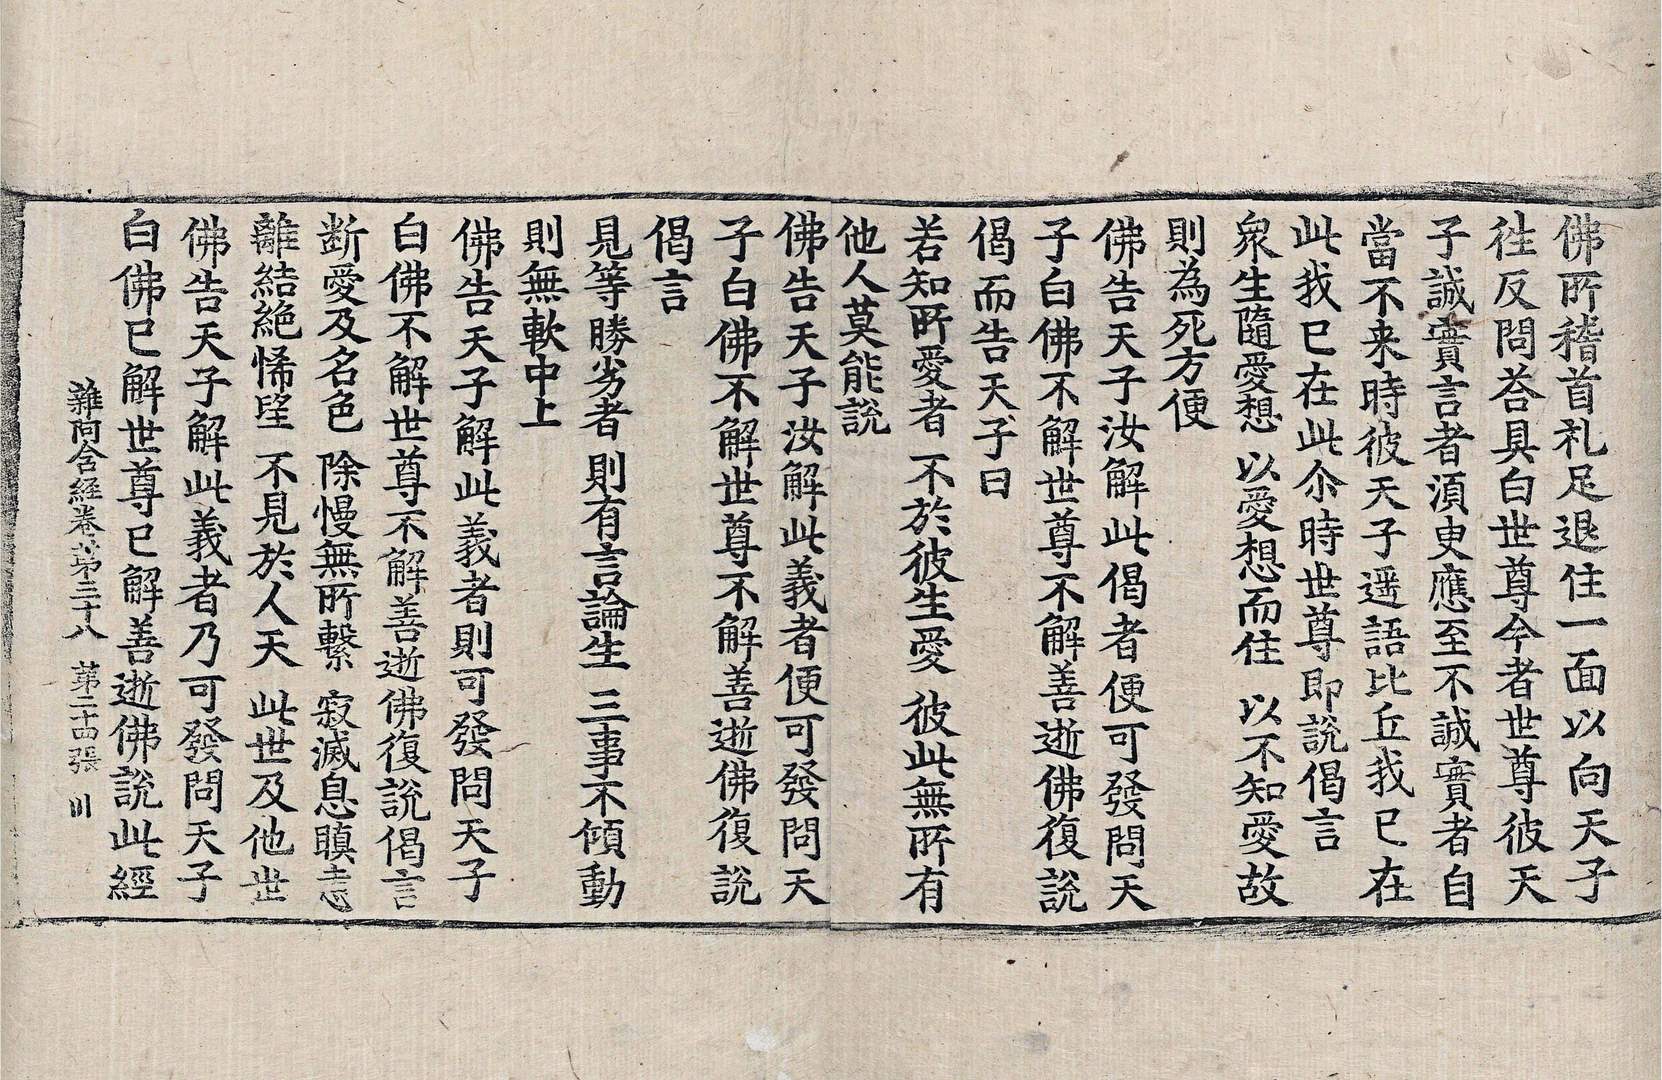 佛所稽首礼足退住一面以向天子
徃反問荅具白世尊今者世尊彼天
子誠實言者湏臾應至不誠實者自
當不来時彼天子遥語比丘我已在
此我已在此尒時世尊即說偈言
衆生隨愛想 以愛想而住 以不知愛故
則為死方便
佛告天子汝解此偈者便可發問天
子白佛不解世尊不解善逝佛復說
偈而告天子曰
若知所愛者 不於彼生愛 彼此無所有
他人莫能說
佛告天子汝解此義者便可發問天
子白佛不解世尊不解善逝佛復說
偈言
見等勝劣者 則有言論生 三事不傾動
則無軟中上
佛告天子解此義者則可發問天子
白佛不解世尊不解善逝佛復說偈言
断愛及名色 除慢無所繫 寂滅息瞋恚
離結絶悕望 不見於人天 此世及他世
佛告天子解此義者乃可發問天子
白佛已解世尊已解善逝佛說此經
雜阿含経卷苐三十八 苐二十四張 川